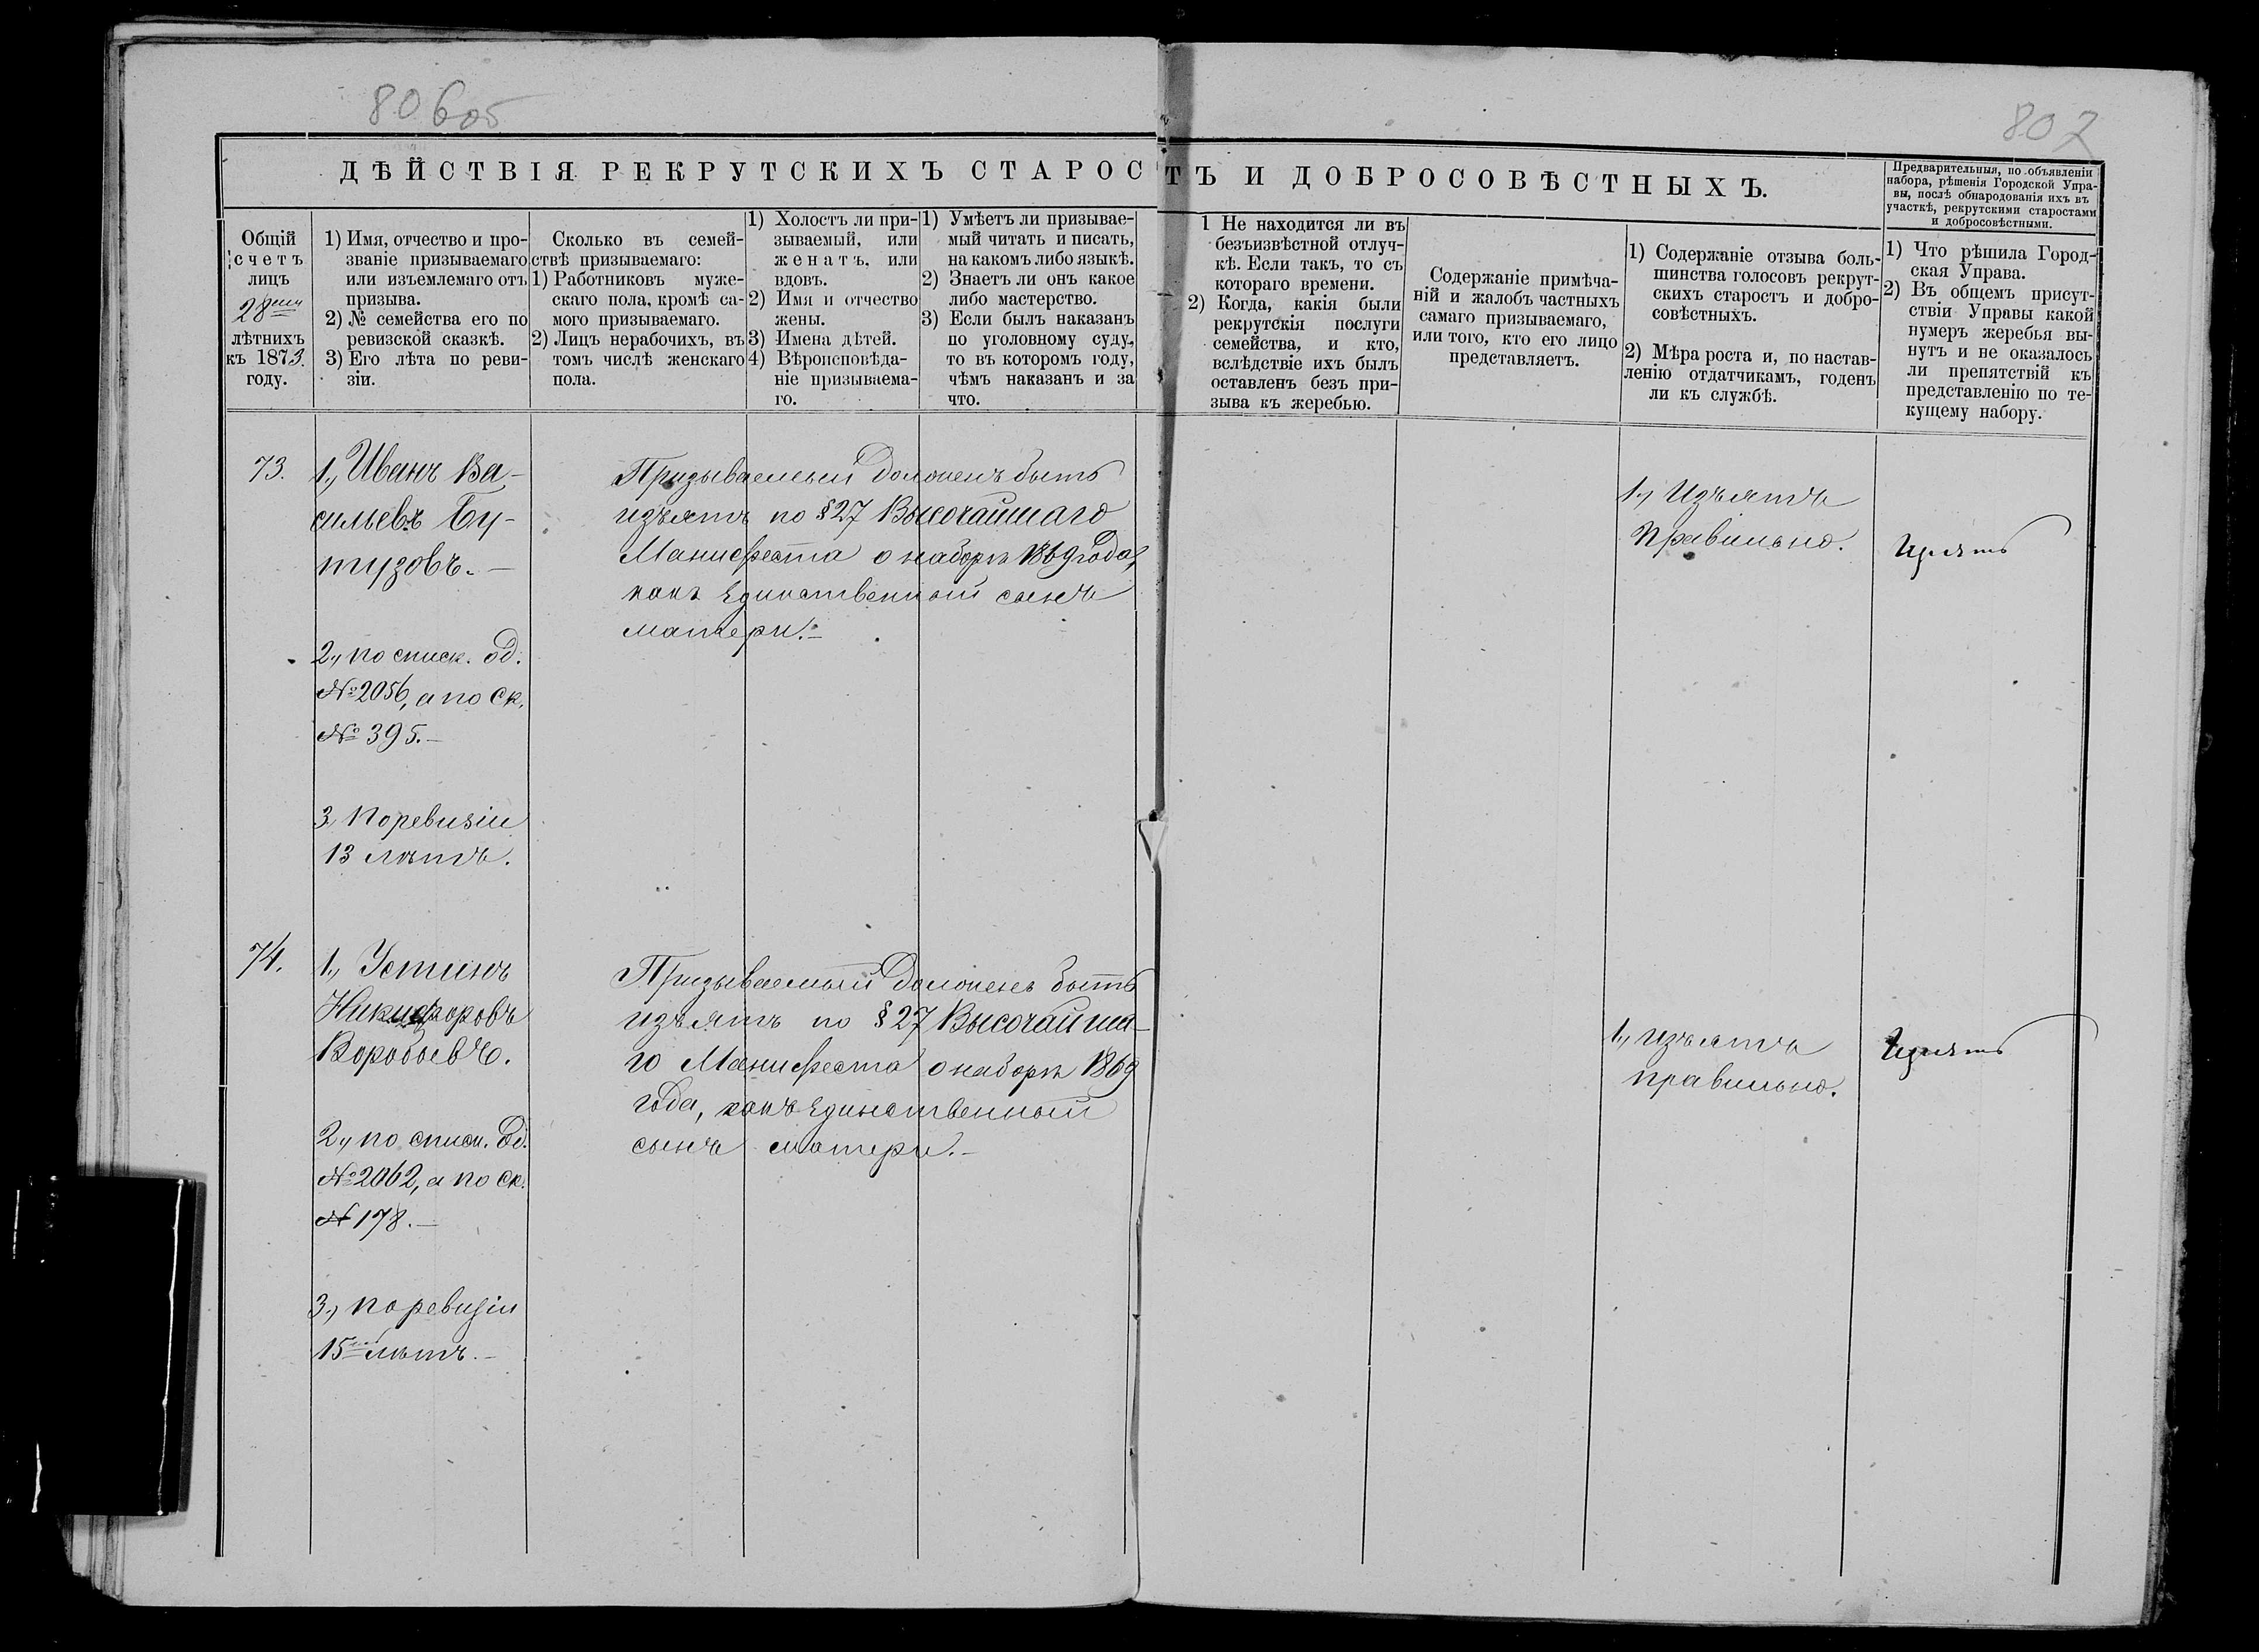 806об
802
ДѢЙСТВІЯ РЕКРУТСКИХЪ СТАРОСТЪ И ДОБРОСОВѢСТНЫХЪ.
Предварительныя, по объявленіи
набора, рѣшенія Городской Упра-
вы, послѣ обнародованія ихъ въ
участкѣ, рекрутскими старостами
и добросовѣстными.
Общій
счетъ
лицъ
28ми
лѣтнихъ
къ 1873.
году.
1) Имя, отчество и про-
званіе призываемаго
или изъемлемаго отъ
призыва.
2) № семейства его по
ревизской сказкѣ.
3) Его лѣта по реви-
зіи.
Сколько въ семей-
ствѣ призываемаго:
1) Работниковъ муже-
скаго пола, кромѣ са-
мого призываемаго.
2) Лицъ нерабочихъ, въ
томъ числѣ женскаго
пола.
1) Холостъ ли при-
зываемый, или
женатъ, или
вдовъ.
2) Имя и отчество
жены.
3) Имена дѣтей.
4) Вѣроисповѣда-
ніе призываема-
го.
1) Умѣетъ ли призывае-
мый читать и писать,
на какомъ либо языкѣ.
2) Знаетъ ли онъ какое
либо мастерство.
3) Если былъ наказанъ
по уголовному суду,
то въ которомъ году,
чѣмъ наказанъ и за
что.
1 Не находится ли въ
безъизвѣстной отлуч-
кѣ. Если такъ, то съ
котораго времени.
2) Когда, какія были
рекрутскія послуги
семейства, и кто,
вслѣдствіе ихъ былъ
оставленъ безъ при-
зыва къ жеребью.
Содержаніе примѣча-
ній и жалобъ частныхъ
самаго призываемаго,
или того, кто его лицо
представляетъ.
1) Содержаніе отзыва боль-
шинства голосовъ рекрут-
скихъ старостъ и добро-
совѣстныхъ.
2) Мѣра роста и, по настав-
ленію отдатчикамъ, годенъ
ли къ службѣ.
1) Что рѣшила Город-
ская Управа.
2) Въ общемъ присут-
ствіи Управы какой
нумеръ жеребья вы-
нутъ и не оказалось
ли препятствій къ
представленію по те-
кущему набору.
73.
1., Иванъ Ва-
сильевъ Бу-
тузовъ.—
2., по списк. од.
№ 2056, а по ск.
№ 395.—
3, по ревизіи
13 лѣтъ.
Призываемый долженъ быть
изъятъ по § 27 Высочайшаго
Манифеста о наборѣ 1869 года,
какъ единственный сынъ
матери.—
1., Изъятъ
правильно.
Изъять
74.
1., Устинъ
Никифоровъ
Воробьевъ.
2., по списк. од.
№ 2062, а по ск.
№ 178.—
3., по ревизіи
15 лѣтъ.—
Призываемый долженъ быть
изъятъ по § 27 Высочайша-
го Манифеста о наборѣ 1869
года, какъ единственный
сынъ матери.—
1., изъятъ
правильно.
Изъять